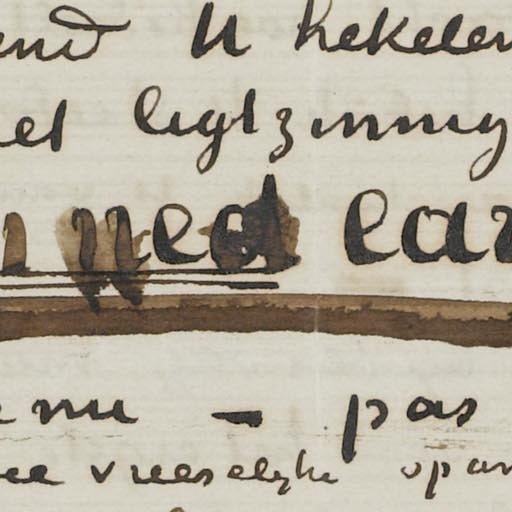 end U hekelen
et ligtzinnig
ned ear
nu — pas
vreeselyke opan